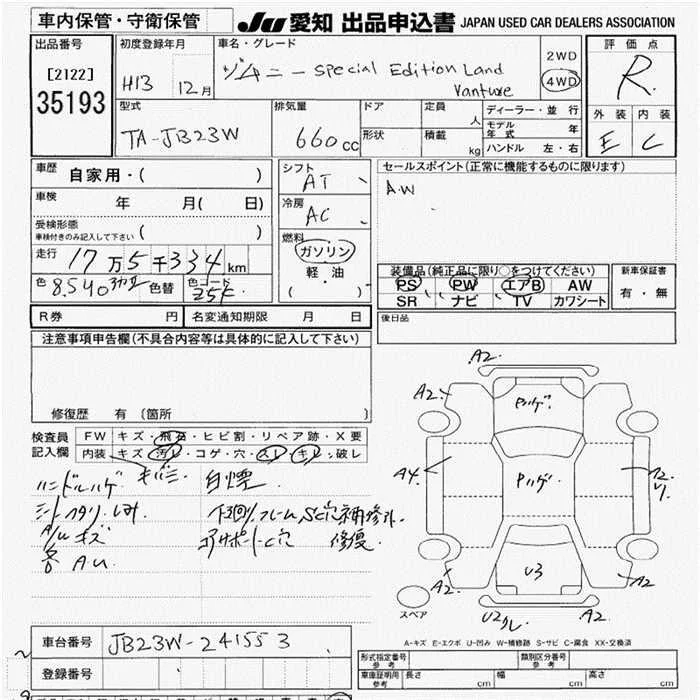 車内保管・守衛保管
JU 愛知 出品申込書 JAPAN USED CAR DEALERS ASSOCIATION
出品番号
[2122]
35193
初度登録年月
H13 12月
車名・グレード
ジムニー Special Edition Land Vanture
2WD
4WD
評価点
R
外装 内装
E C
型式
TA-JB23W
排気量
660cc
ドア
形状
定員
人
積載
kg
ディーラー・並行
モデル年式 年
ハンドル 左・右
車歴
自家用・( )
車検
年 月( 日)
受検形態
車検付きのみ記入して下さい ( )
走行
17万5千334km
色
8.540
色替
色コード
25E
シフト
AT
冷房
AC
燃料
ガソリン
軽・油
( ・ )
セールスポイント(正常に機能するものに限ります)
A.W
装備品(純正品に限り○をつけてください)
PS PW エアB AW
SR ナビ TV カワシート
新車保証書
有・無
後日品
R券 円 名変通知期限 月 日
注意事項申告欄(不具合内容等は具体的に記入して下さい)
修復歴 有 〔箇所 〕
検査員記入欄
FW キズ・飛石・ヒビ割・リペア跡・X要
内装 キズ・汚レ・コゲ・穴・スレ・キレ・破レ
キバミ
ハンドルハゲ 白煙
シートヘタリ、シミ 下回り、フレーム、SC穴補修跡
A/Uキズ コアサポートC穴 修復
各AU
A2.
A2.
Pハゲ.
A4
Pハゲ.
A2.
A2.
U3
A2
スペア
U2クレ
A2.
A-キズ E-エクボ U-凹み W-補修跡 S-サビ C-腐食 XX-交換済
車台番号 JB23W-241553
登録番号
型式指定番号 参考
類別区分番号 参考
車庫証明用 参考
長さ cm
幅 cm
高さ cm